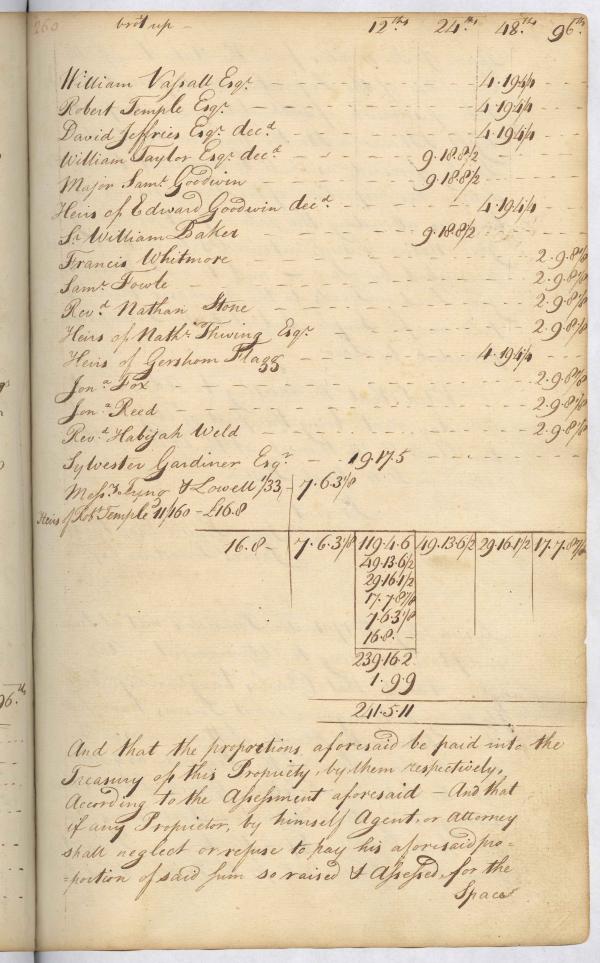 260 brot up — 12ths 24ths 48ths 96ths
William Vassall Esqr. 4.19.4¼
Robert Temple Esqr. 4.19.4¼
David Jeffries Esqr. decd. 4.19.4¼
William Taylor Esqr. decd. 9.18.8½
Major Saml. Goodwin 9.18.8½
Heirs of Edward Goodwin decd. 4.19.4¼
Sr. William Baker 9.18.8½
Francis Whitmore 2.9.8⅛
Saml. Fowle 2.9.8⅛
Revd. Nathan Stone 2.9.8⅛
Heirs of Nathl. Thwing Esqr. 2.9.8⅛
Heirs of Gershom Flagg 4.19.4¼
Jona. Fox 2.9.8⅛
Jona. Reed 2.9.8⅛
Revd. Habijah Weld 2.9.8⅛
Sylvester Gardiner Esqr. 19.17.5
Messrs. Tyng & Lowell 1/33, 7.6.3⅛
Heirs of Robt. Temple 11/160 — £16.8
16.8 — 7.6.3⅛ 119.4.6 49.13.6½ 29.16.1½ 17.7.8⅞
49.13.6½
29.16.1½
17.7.8⅞
7.6.3⅛
16.8. —
239.16.2
1.9.9
241.5.11
And that the proportions aforesaid be paid into the
Treasury of this Propriety, by them respectively,
According to the Assessment aforesaid — And that
if any Proprietor, by himself Agent, or Attorney
shall neglect or refuse to pay his aforesaid pro=
=portion of said sum so raised & Assessed, for the
Space
96.ths